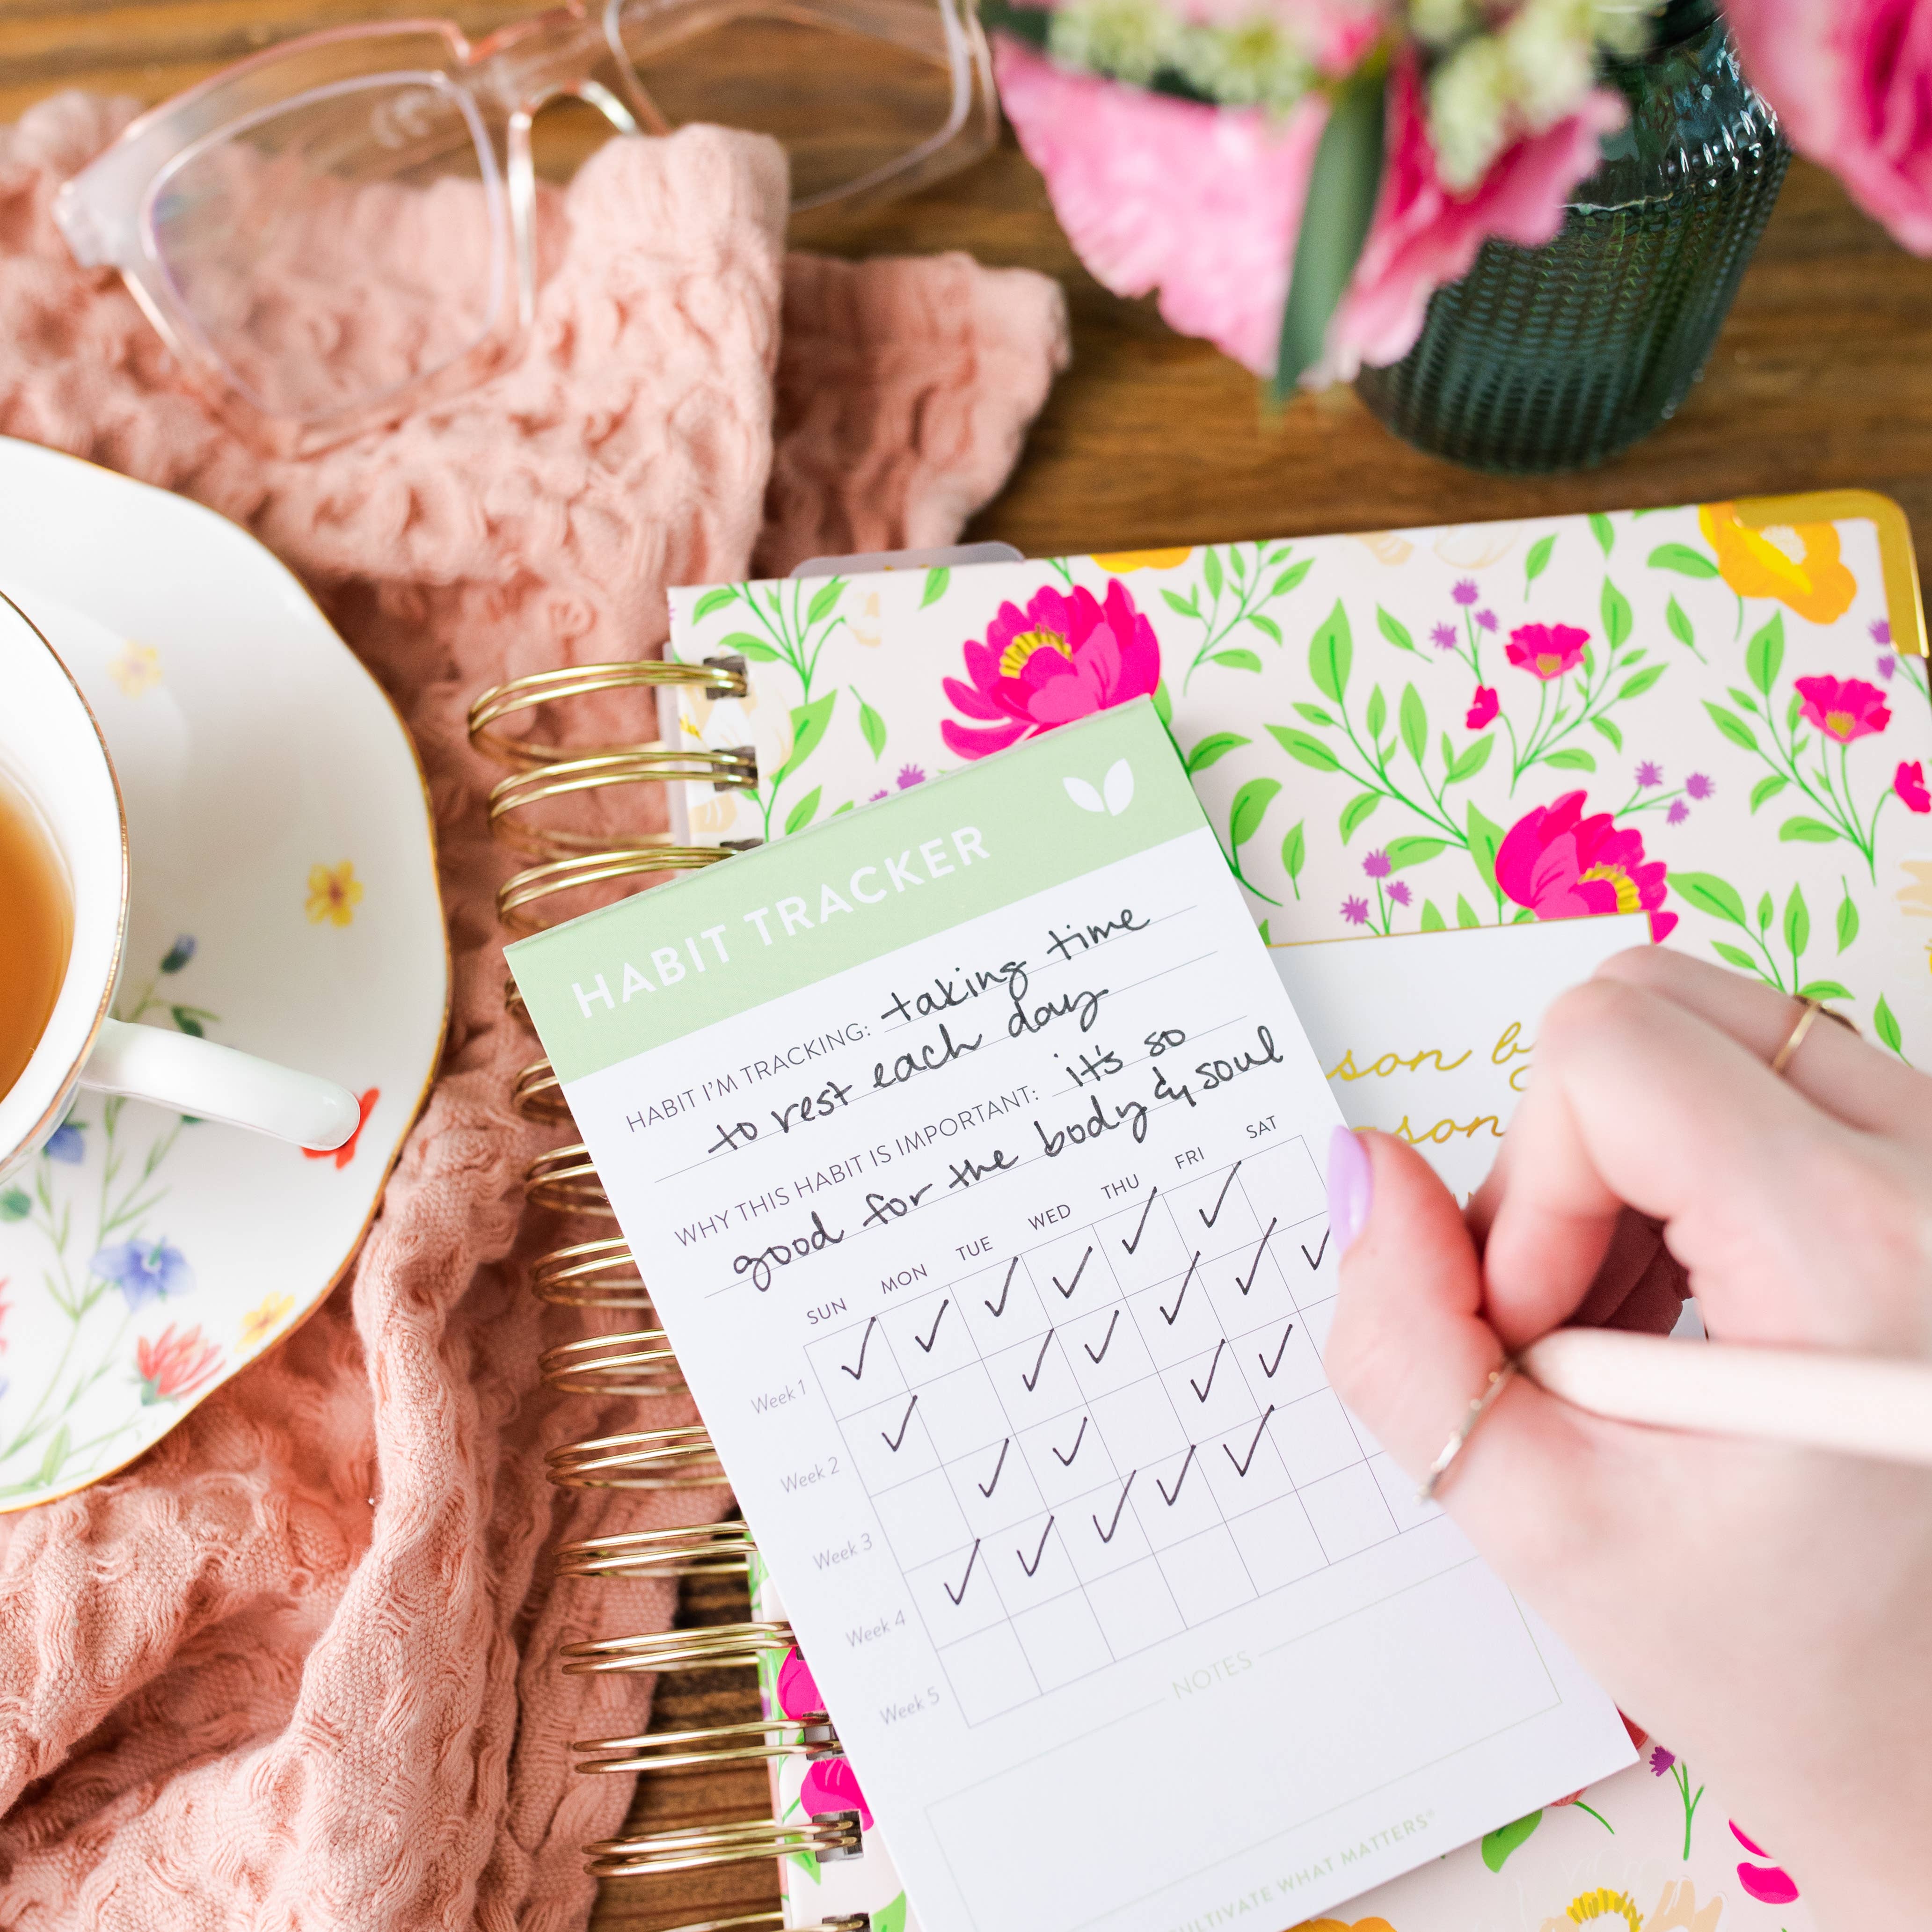 HABIT TRACKER
HABIT I'M TRACKING: taking time
to rest each day
WHY THIS HABIT IS IMPORTANT: it's so
good for the body & soul
SUN MON TUE WED THU FRI SAT
Week 1
Week 2
Week 3
Week 4
Week 5
NOTES
CULTIVATE WHAT MATTERS®
son by
son